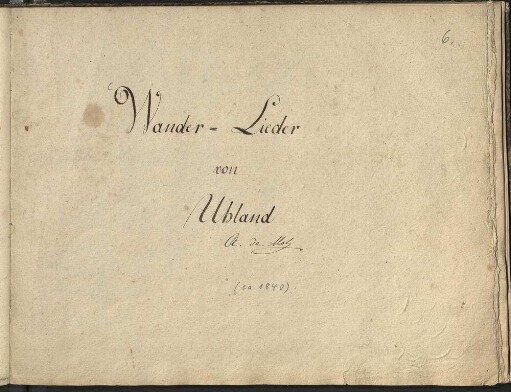 6.
Wander - Lieder
von
Uhland
A. de
(ca 1840)